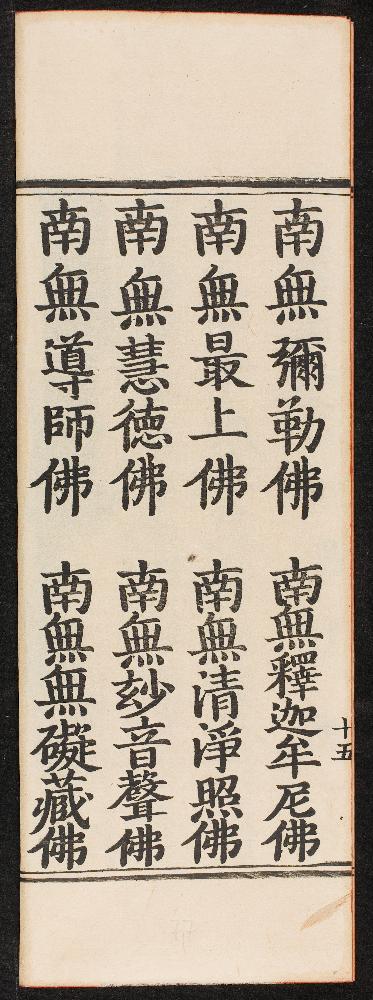 南無彌勒佛 南無釋迦牟尼佛
十五
南無最上佛 南無清淨照佛
南無慧德佛 南無玅音聲佛
南無導師佛 南無無礙藏佛